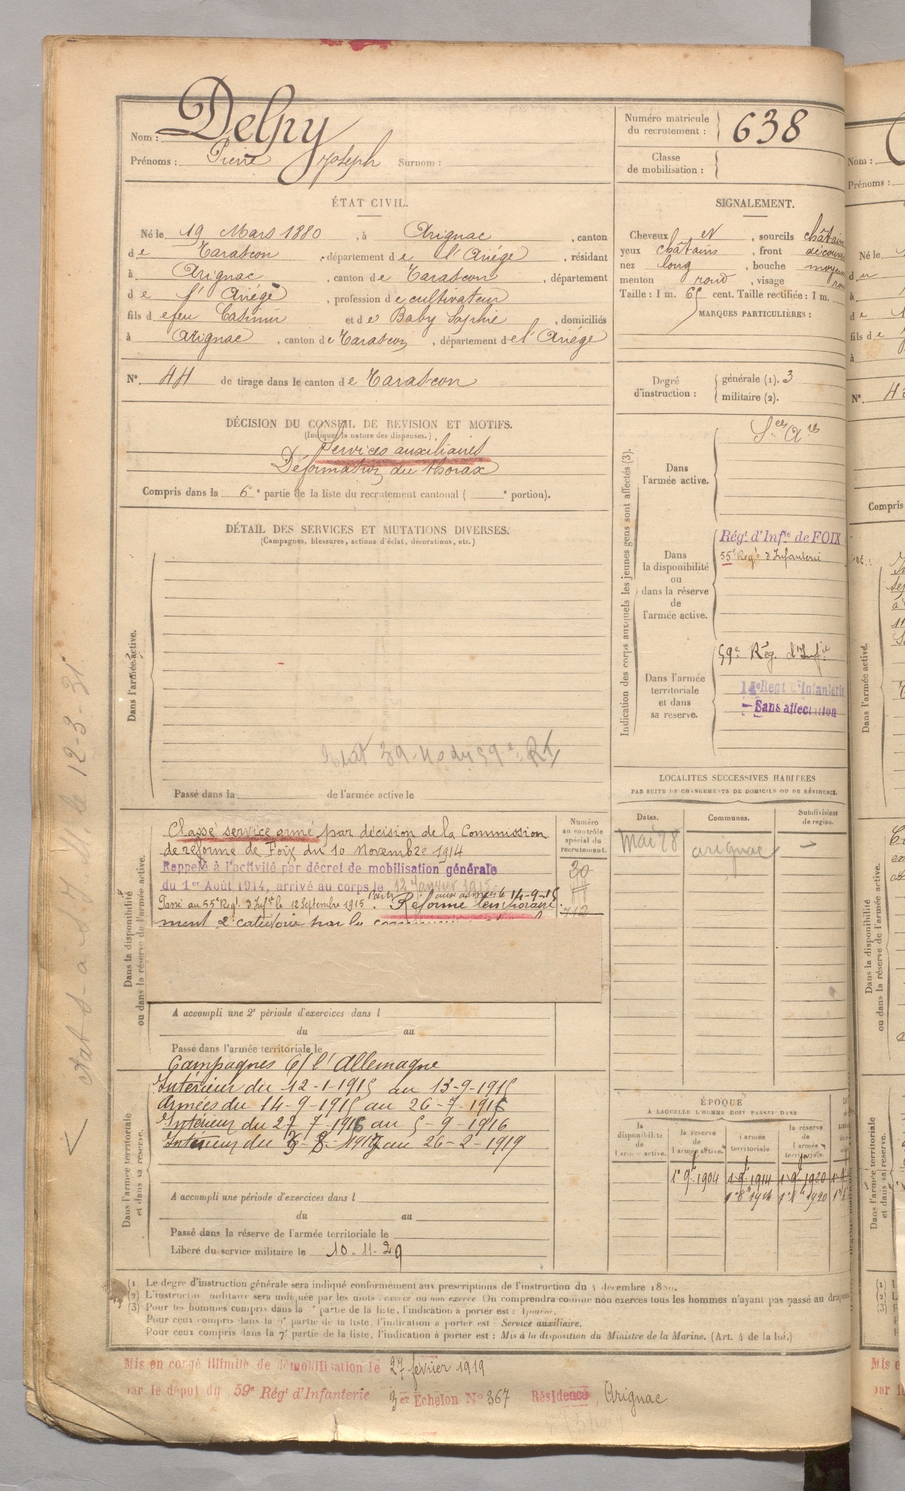 Nom : Delpy
Prénoms : Pierre Joseph Surnom :
Numéro matricule du recrutement : 638
Classe de mobilisation :
ÉTAT CIVIL.
Né le 19 Mars 1880, à Arignac, canton
de Tarascon, département de l'Ariége, résidant
à Arignac, canton de Tarascon, département
de l'Ariége, profession de cultivateur
fils de feu Casimir et de Baby Sophie, domiciliés
à Arignac, canton de Tarascon, département de l'Ariége
N° 44 de tirage dans le canton de Tarascon
SIGNALEMENT.
Cheveux et, sourcils châtains
yeux châtains, front découvert
nez long, bouche moyenne
menton rond, visage
Taille : 1 m. 65 cent. Taille rectifiée : 1 m.
MARQUES PARTICULIÈRES :
Degré d'instruction : générale (1). 3
militaire (2).
DÉCISION DU CONSEIL DE REVISION ET MOTIFS.
(Indiquer la nature des dispenses.)
Services auxiliaires
Déformation du thorax
Compris dans la 6e partie de la liste du recrutement cantonal ( portion).
DÉTAIL DES SERVICES ET MUTATIONS DIVERSES.
(Campagnes, blessures, actions d'éclat, décorations, etc.)
Dans l'armée active.
39-40 du 59e RI
Passé dans la de l'armée active le
Indication des corps auxquels les jeunes gens sont affectés (3).
Dans l'armée active.
Sces Ares
Dans la disponibilité ou dans la réserve de l'armée active.
Régt d'Infie de FOIX
55e Regt d'Infanterie
Dans l'armée territoriale et dans sa réserve.
59e Rég. d'Infie
14e Regt d'Infanterie
Sans affectation
LOCALITÉS SUCCESSIVES HABITÉES
PAR SUITE DE CHANGEMENTS DE DOMICILE OU DE RÉSIDENCE.
Dates. Communes. Subdivisions de région.
Mai 28 arignac
Dans la disponibilité ou dans la réserve de l'armée active.
Numéro au contrôle spécial du recrutement.
Classé service armé par décision de la Commission
de réforme de Foix du 10 Novembre 1914
Rappelé à l'activité par décret de mobilisation générale
du 1er Août 1914, arrivé au corps le 12 Janvier 1915
Passé au 55e Regt d'Infie le 12 Septembre 1915. Parti aux armées le 14-9-15
Réformé temporaire
ment 2e catégorie par la
A accompli une 2e période d'exercices dans l
du au
Passé dans l'armée territoriale le
Campagnes C/ l'Allemagne
Intérieur du 12-1-1915 au 13-9-1915
Armées du 14-9-1915 au 26-7-1916
Intérieur du 27 7-1916 au 5-9-1916
Intérieur du 3-8-1917 au 26-2-1919
Dans l'armée territoriale et dans sa réserve.
A accompli une période d'exercices dans l
du au
Passé dans la réserve de l'armée territoriale le
Libéré du service militaire le 10-11-29
ÉPOQUE
À LAQUELLE L'HOMME DOIT PASSER DANS
la disponibilité de l'armée active. la réserve de l'armée active. l'armée territoriale. la réserve de l'armée territoriale.
1er 9e 1904 1-9-1914 1-9-1920
(1) Le degré d'instruction générale sera indiqué conformément aux prescriptions de l'instruction du 4 décembre
(2) L'instruction militaire sera indiquée par les mots : exercé ou non exercé. On comprendra comme non exercés tous les hommes n'ayant pas passé au drapeau
(3) Pour les hommes compris dans la partie de la liste, l'indication à porter est :
Pour ceux compris dans la partie de la liste, l'indication à porter est : Service auxiliaire.
Pour ceux compris dans la 7e partie de la liste, l'indication à porter est : Mis à la disposition du Ministre de la Marine. (Art. 4 de la loi.)
Mis en congé illimité de démobilisation le 27 février 1919
par le dépôt du 59e Régt d'Infanterie 3e Echelon N° 367 Résidence, Arignac